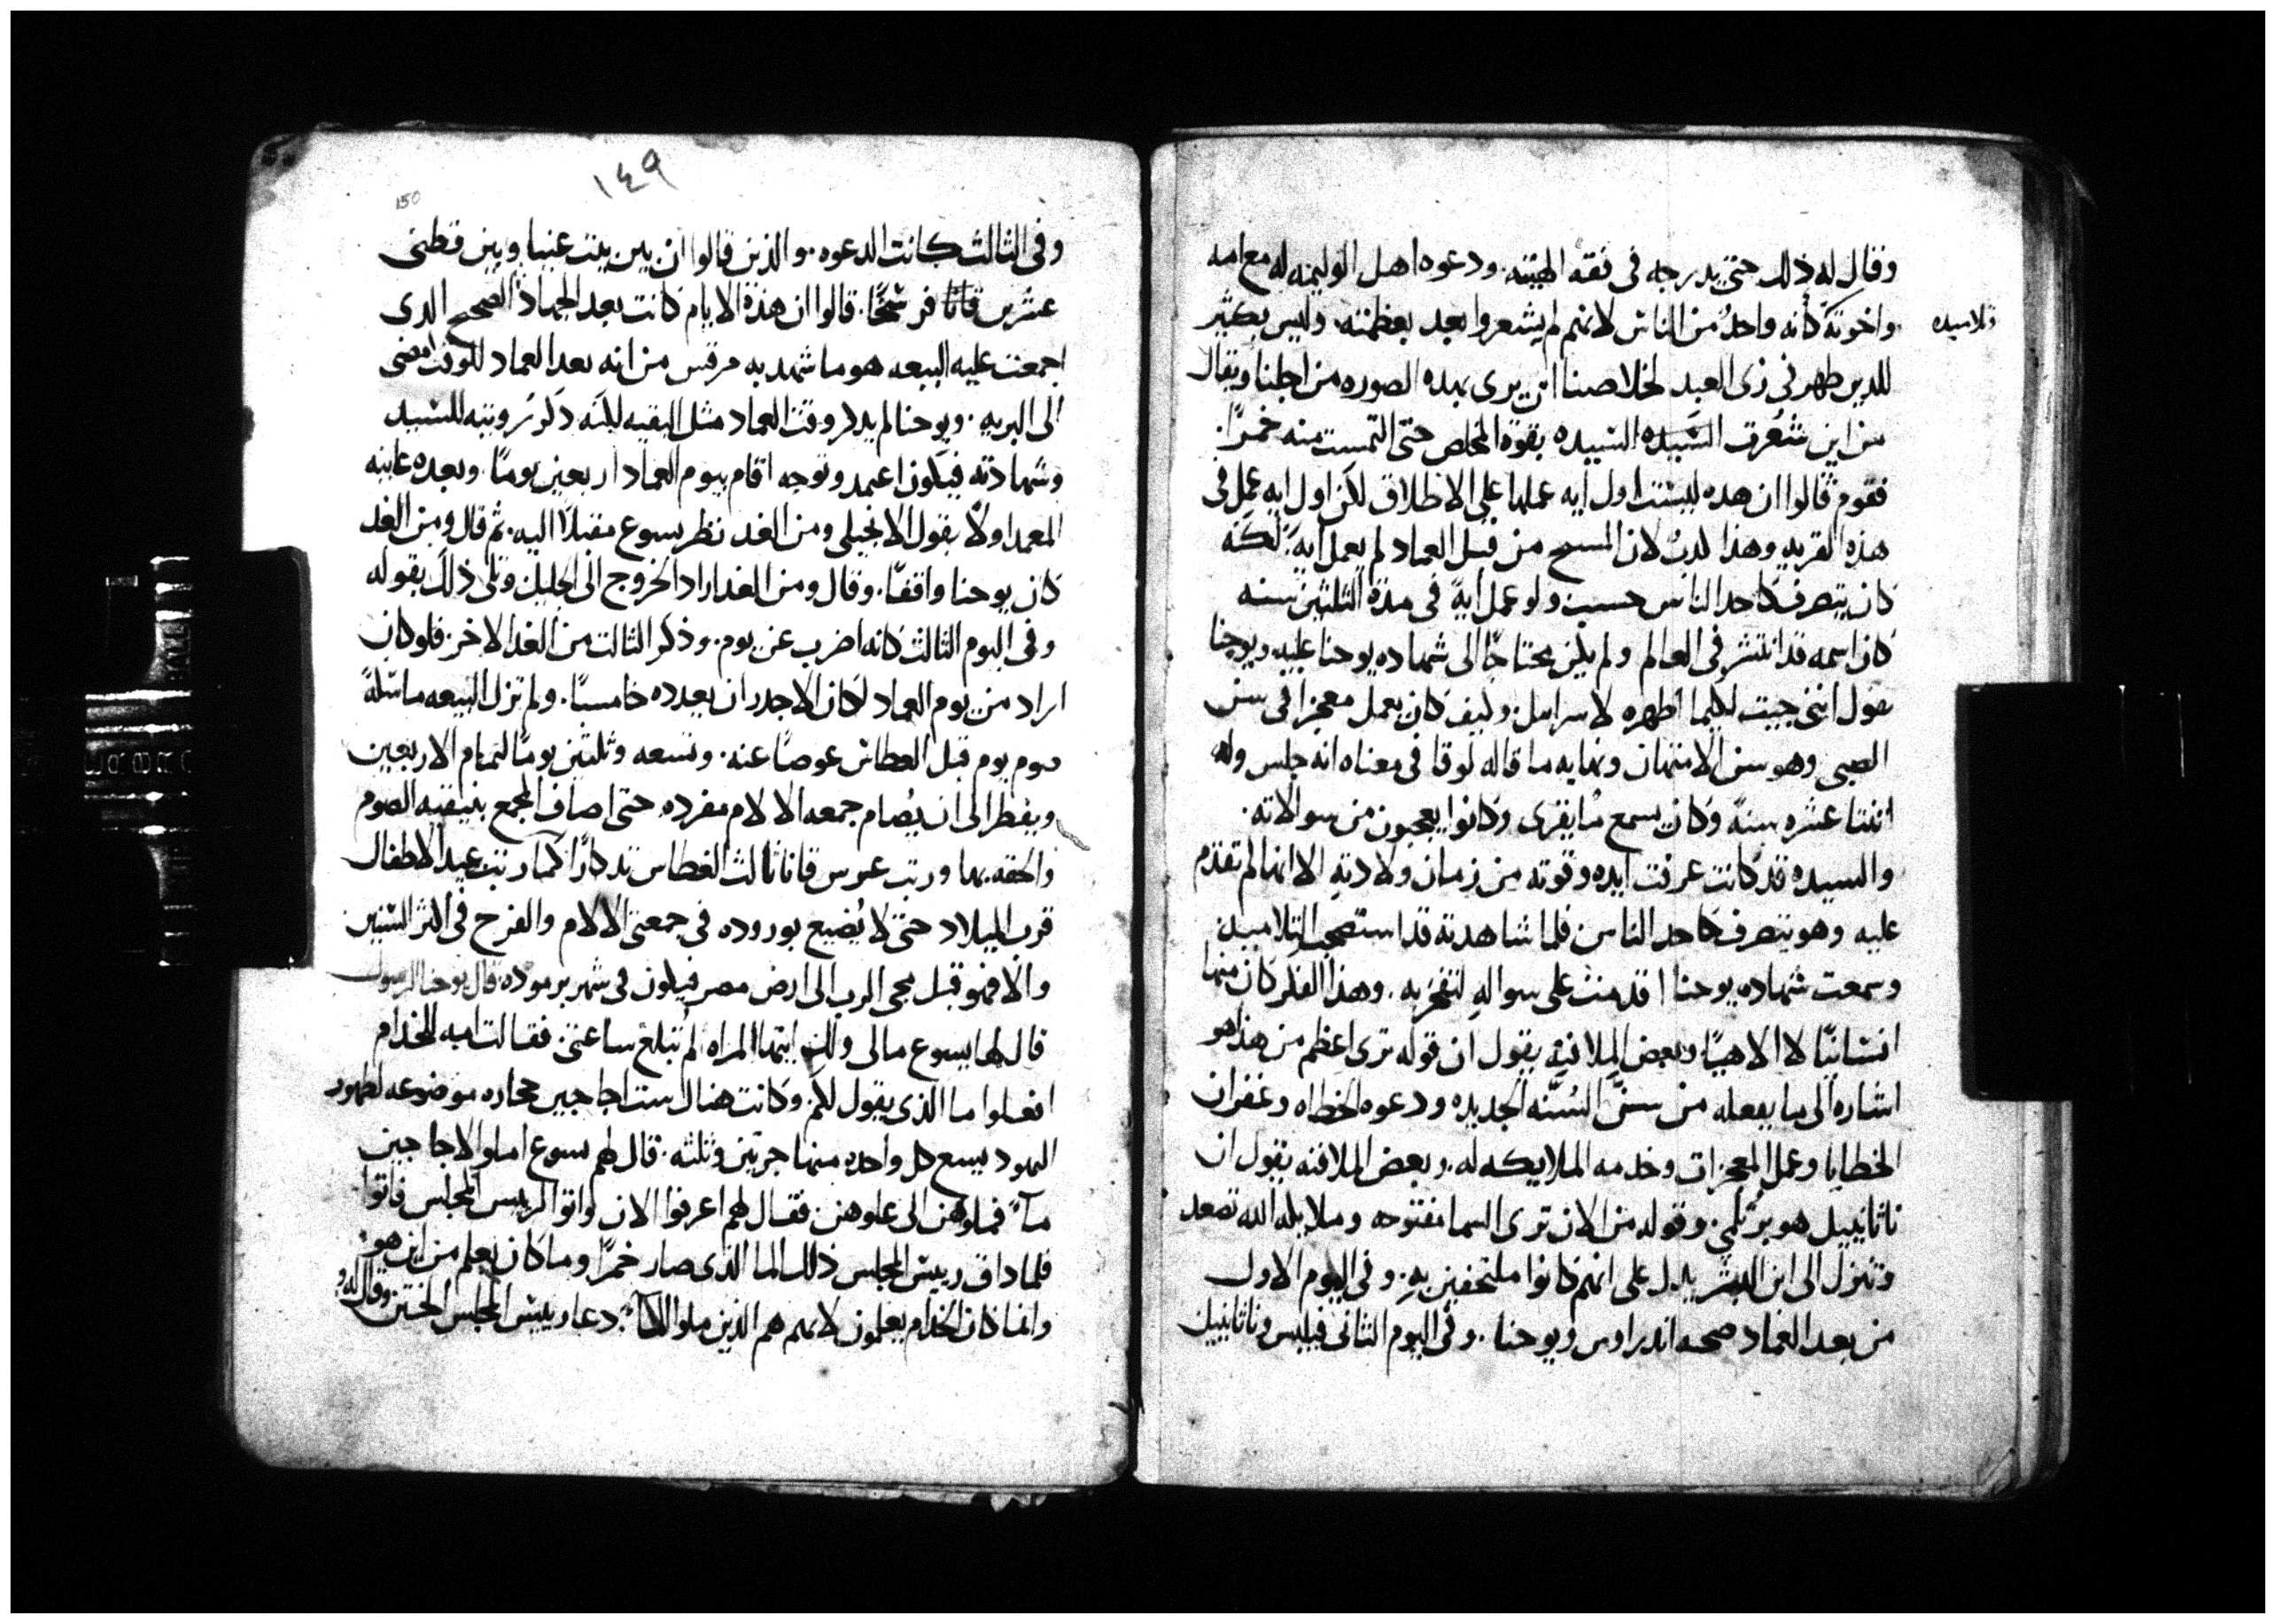 وقال له ذلك حتى يدرجه فى فقه الهيته. ودعوه اهل الوليمه له مع امه
واخوته كأنه واحدٌ من الناس لانهم لم يشعروا بعد بعظمته. وليس بكثير
تلاميده
للدين طهر فى زى العبد لخلاصنا ان يرى بهده الصوره من اجلنا ويقال
من اين شعرت السيده السيده بقوة المخلص حتى التمست منه خمرًا.
فقوم قالوا ان هده ليست اول ايه عملها على الاطلاق لكن اول ايه عمل فى
هذه القريه وهذا لدبٌ لان المسيح من قبل العماد لم يعمل ايةً. لكنه
كان يتصرف كاحد الناس حسب ولو عمل ايةً فى مدة الثلثين سنه
كان اسمه قد انتشر فى العالم ولم يكن محتاجًا الى شهاده يوحنا عليه ويوحنا
يقول اننى جيت لكيما اظهره لاسراىيل. وكيف كان يعمل معجزا فى سن
الصبى وهو سن الامتهان ونهايه ما قاله لوقا فى معناه انه جلس وله
اثنتا عشره سنةً وكان يسمع ما يقرى وكانوا يعجبون من سوالاته.
والسيده قد كانت عرفت ايده وقوته من زمان ولادته الا انها لم تقدم
عليه وهو يتصرف كاحد الناس فلما شاهدته قد استصحب التلاميد
وسمعت شهاده يوحنا اقدمت على سواله لتفخر به. وهذا الفكر كان منها
انسانيًا لا الاهيًا. وبعض الملافنة يقول ان قوله ترى اعظم من هذا هو
اشاره الى ما يفعله من سنّ السُنَّه الجديده ودعوه الخطاه وغفران
الخطايا وعمل المعجزات وخدمه الملايكه له. وبعض الملافنه يقول ان
ناثانييل هو برتلمى. وقوله من الان ترى السما مفتوحه وملايكه الله تصعد
وتنزل الى ابن البشر يدل على انهم كانوا ملتحفين به. وفى اليوم الاول
من بعد العماد صحبه اندراوس ويوحنا. وفى اليوم الثانى فيلبس وناثانييل
١٤٩
150
وفى الثالث كانت الدعوه. والذين قالوا ان بين بيت عنيا وبين قطنى
عشرين قانا فرسخًا. قالوا ان هذه الايام كانت بعد الجهاد الصحيح الدى
اجمعت عليه البيعه هو ما شهد به مرقس من انه بعد العماد للوقت امضى
الى البريه. ويوحنا لم يدكر وقت العماد مثل البقيه لكنه دكر رويته للسيد
وشهادته فيكون اعتمد وتوجه اقام بيوم العماد اربعين يومًا. وبعده عاينه
المعمد اولًا بقول الانجيلى ومن الغد نظر يسوع مقبلًا اليه. ثم قال ومن الغد
كان يوحنا واقفًا. وقال ومن الغد اراد الخروج الى الجليل وتلى ذلك بقوله
وفى اليوم الثالث كانه اضرب عن يوم. وذكر الثالث من الغد الاخر. فلو كان
اراد من يوم العماد لكان الاجدر ان يعدده خامسًا. ولم تزل البيعه ماسكةً
صوم يوم قبل الغطاس عوضًا عنه. وتسعه وثلثين يومًا لتمام الاربعين
ويفطر الى ان يُصام جمعه الالام مفرده. حتى اضاف المجمع بنيقيه الصوم
والحقه بها ورتب عرس قانا ثالث الغطاس تدكارًا كما رتب عيد الاطفال
قرب الميلاد حتى لا يُضيع بوروده فى جمعتى الالام والفرح فى اكثر السنين
والا فهو قبل مجى الرب الى ارض مصر فيكون فى شهر برموده. قال يوحنا الرسول
قال لها يسوع مالى ولك ايتها المراه لم تبلغ ساعتى. فقالت امه للخدام
افعلوا ما الذى يقول لكم. وكانت هناك ست اجاجين حجاره موضوعه لطهور
اليهود يسع كل واحده منها جرتين وثلثه. قال لهم يسوع املوا الاجاجين
مآءً فملوهن الى علوهن. فقال لهم اغرفوا الان واتوا الريس المجلس فاتوا
فلما داق رييس المجلس ذلك الما الذى صار خمرًا وما كان يعلم من اين هو
وانما كان الخدام يعلمون لانهم هم الذين ملوا المآءَ. دعا رييس المجلس الختن وقال له